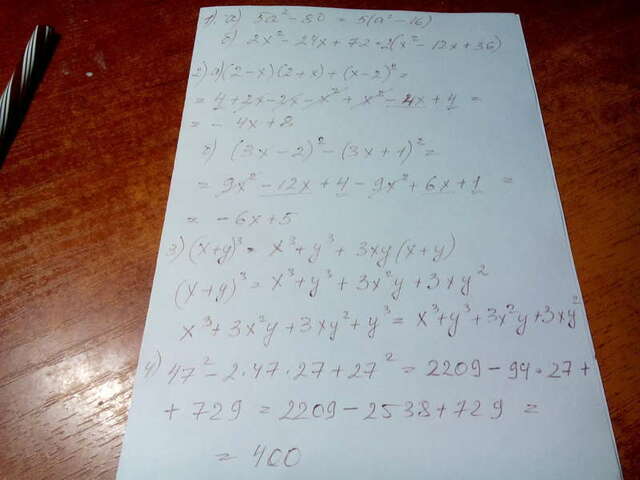 1) а) 5a² - 80 = 5(a² - 16)
б) 2x² - 24x + 72 = 2(x² - 12x + 36)
2) а) (2-x)(2+x) + (x-2)² =
= 4 + 2x - 2x - x² + x² - 4x + 4 =
= - 4x + 8
б) (3x - 2)² - (3x + 1)² =
= 9x² - 12x + 4 - 9x² + 6x + 1 =
= - 6x + 5
3) (x+y)³ = x³ + y³ + 3xy(x+y)
(x+y)³ = x³ + y³ + 3x²y + 3xy²
x³ + 3x²y + 3xy² + y³ = x³ + y³ + 3x²y + 3xy²
4) 47² - 2·47·27 + 27² = 2209 - 94·27 +
+ 729 = 2209 - 2538 + 729 =
= 400